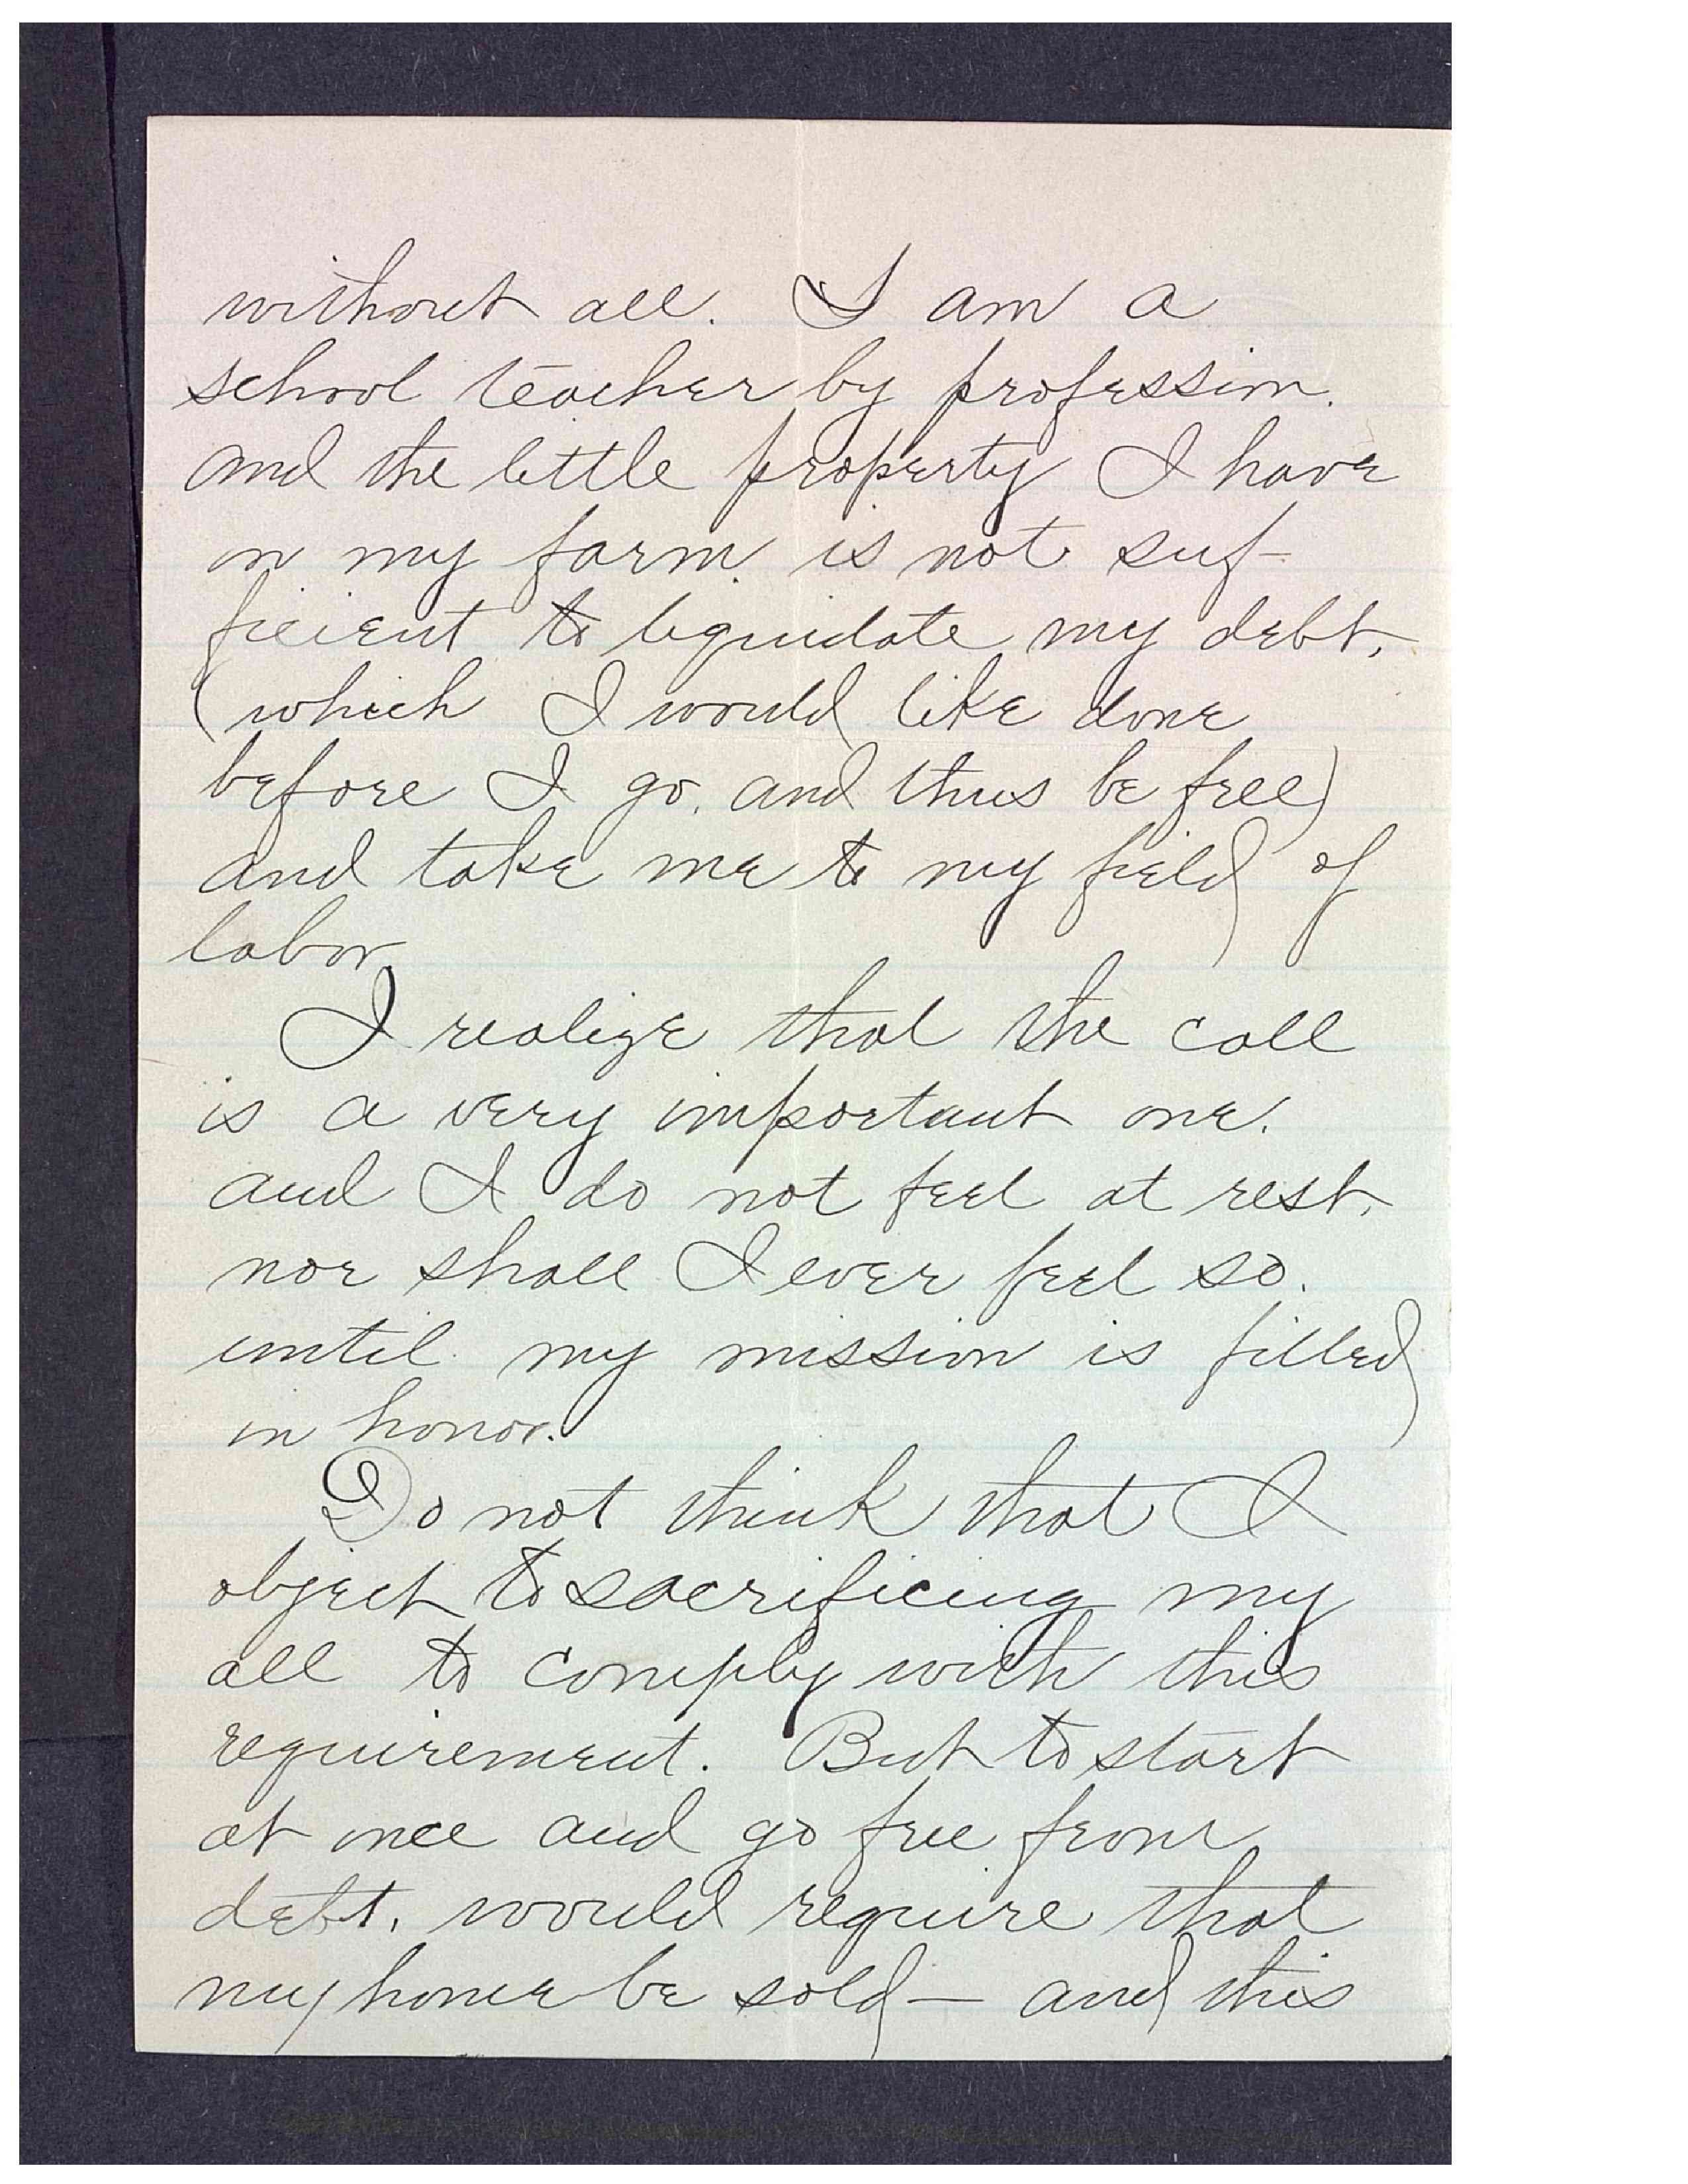 without all. I am a
school teacher by profession.
and the little property I have
on my farm. is not suf-
ficient to liquidate my debt,
(which I would like done
before I go. and thus be free)
and take me to my field of
labor.
I realize that the call
is a very important one.
and I do not feel at rest,
nor shall I ever feel so.
until my mission is filled
in honor.
Do not think that I
object to sacrificing my
all to comply with this
requirement. But to start
at once and go free from
debt, would require that
my home be sold — and this